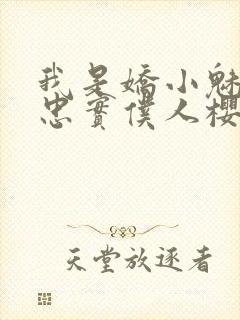 我是嬌小魅
忠實僕人櫻
天堂放逐者